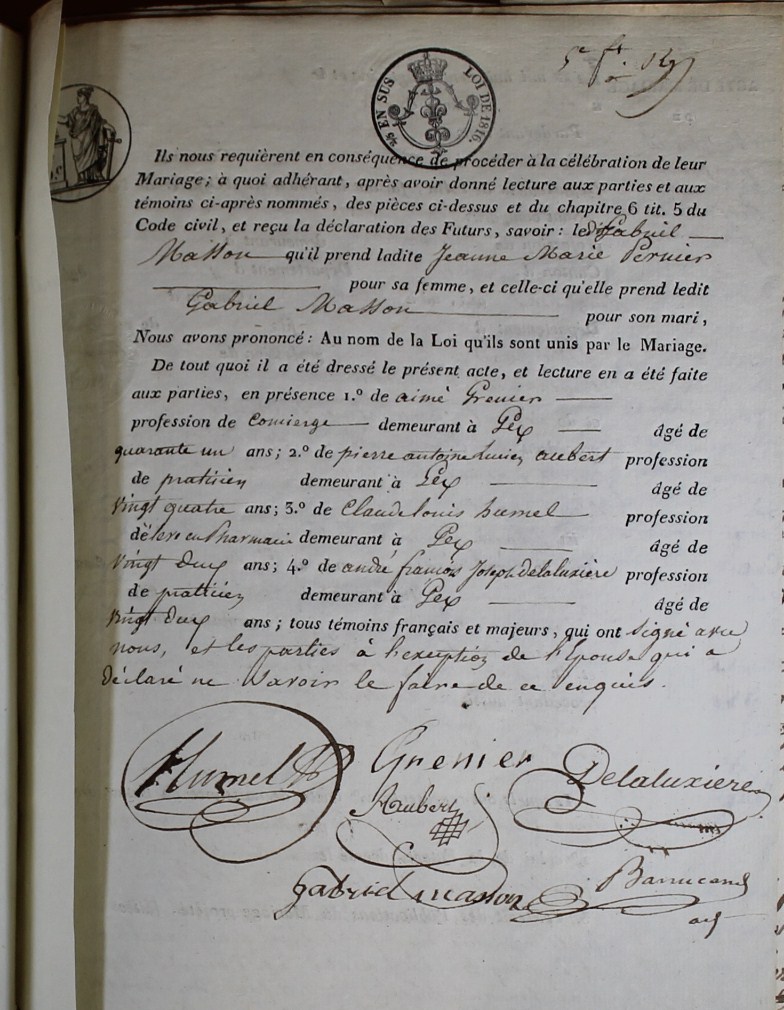 5e ft.
45 EN SUS LOI DE 1816.
Ils nous requièrent en conséquence de procéder à la célébration de leur
Mariage; à quoi adhérant, après avoir donné lecture aux parties et aux
témoins ci-après nommés, des pièces ci-dessus et du chapitre 6 tit. 5 du
Code civil, et reçu la déclaration des Futurs, savoir: ledit Gabriel
Masson qu'il prend ladite Jeanne Marie Pernier
pour sa femme, et celle-ci qu'elle prend ledit
Gabriel Masson pour son mari,
Nous avons prononcé: Au nom de la Loi qu'ils sont unis par le Mariage.
De tout quoi il a été dressé le présent acte, et lecture en a été faite
aux parties, en présence 1.º de aimé Grenier
profession de concierge demeurant à Gex âgé de
quarante un ans; 2.º de pierre antoine lucien aubert profession
de praticien demeurant à Gex âgé de
vingt quatre ans; 3.º de Claude louis humel profession
d'élève en Pharmacie demeurant à Gex âgé de
vingt deux ans; 4.º de andré françois Joseph delaluxière profession
de praticien demeurant à Gex âgé de
vingt deux ans; tous témoins français et majeurs, qui ont signé avec
nous, et les parties à l'exception de l'Epouse qui a
déclaré ne savoir le faire de ce enquis.
Humel Grenier Delaluxiere
Aubert
gabriel masson Barrucand
adj